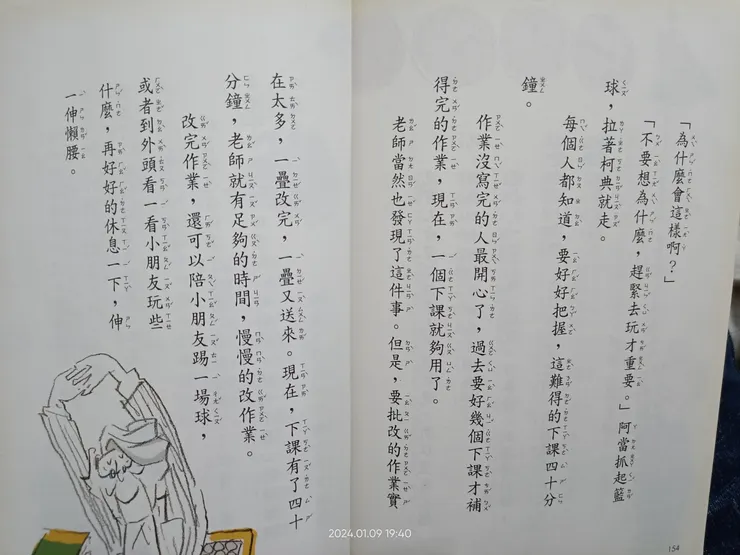 「為什麼會這樣啊？」
「不要想為什麼，趕緊去玩才重要。」阿當抓起籃
球，拉著柯典就走。
每個人都知道，要好好把握，這難得的下課四十分
鐘。
作業沒寫完的人最開心了，過去要好幾個下課才補
得完的作業，現在，一個下課就夠用了。
老師當然也發現了這件事。但是，要批改的作業實
154
在太多，一疊改完，一疊又送來。現在，下課有了四十
分鐘，老師就有足夠的時間，慢慢的改作業。
改完作業，還可以陪小朋友踢一場球，
或者到外頭看一看小朋友玩些
什麼，再好好的休息一下，伸
一伸懶腰。
2024.01.09 19:40